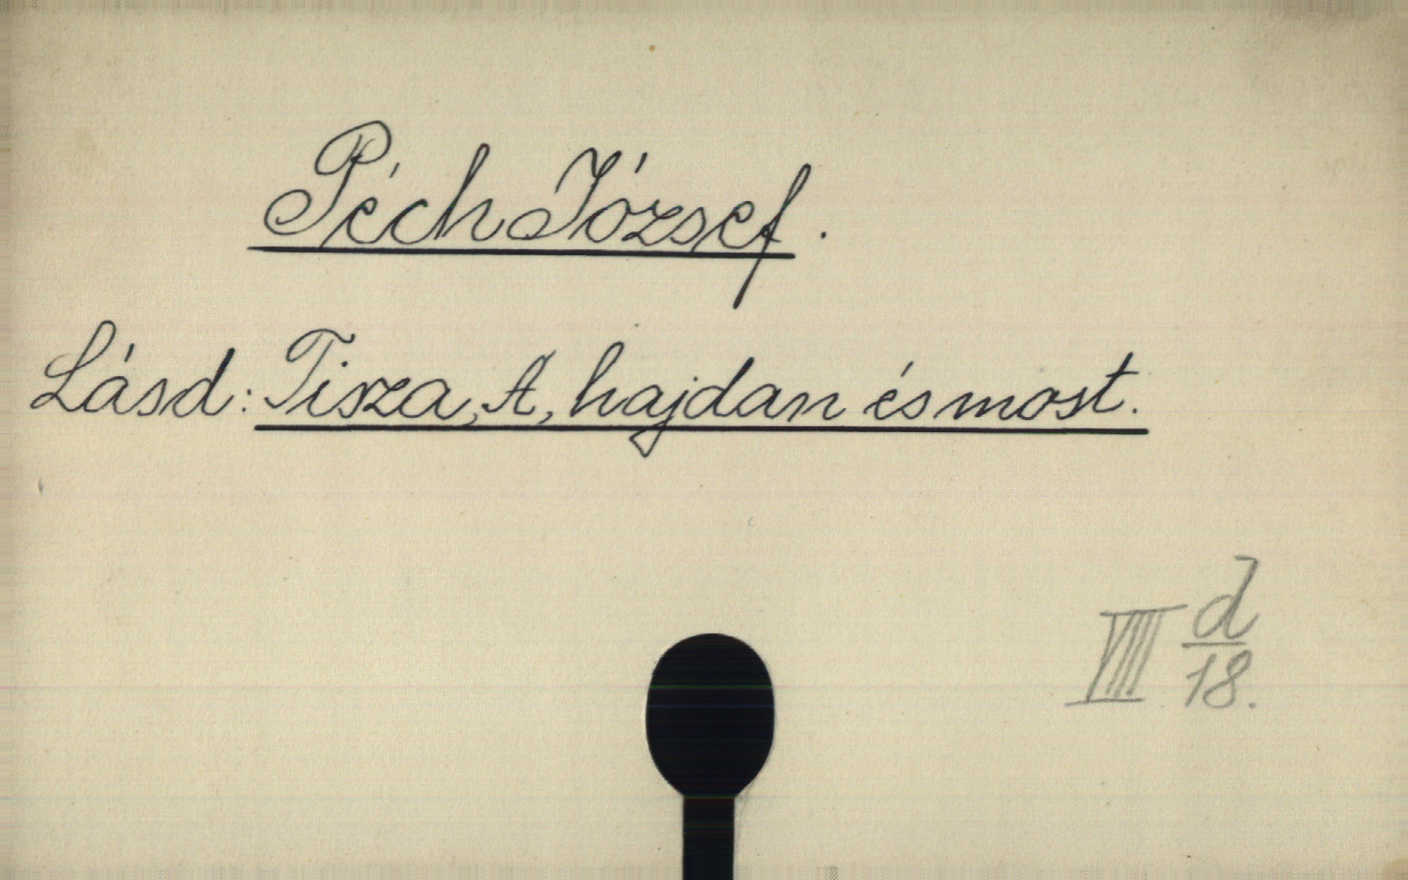 Péch József.
Lásd: Tisza, A, hajdan és most.
VIII d/18.